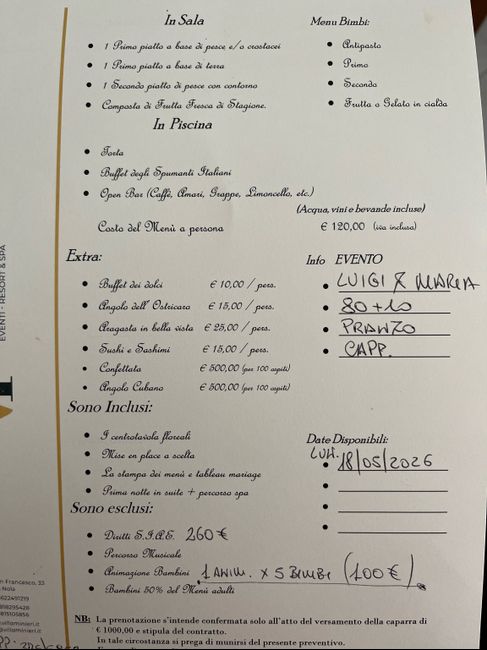 In Sala
• 1 Primo piatto a base di pesce e/o crostacei
• 1 Primo piatto a base di terra
• 1 Secondo piatto di pesce con contorno
• Composta di Frutta Fresca di Stagione.
Menu Bimbi:
• Antipasto
• Primo
• Secondo
• Frutta o Gelato in cialda
In Piscina
• Torta
• Buffet degli Spumanti Italiani
• Open Bar (Caffè, Amari, Grappe, Limoncello, etc.)
(Acqua, vini e bevande incluse)
Costo del Menù a persona € 120,00 (iva inclusa)
Extra:
• Buffet dei dolci € 10,00 / pers.
• Angolo dell' Ostricaro € 15,00 / pers.
• Aragosta in bella vista € 25,00 / pers.
• Sushi e Sashimi € 15,00 / pers.
• Confettata € 500,00 (per 100 ospiti)
• Angolo Cubano € 500,00 (per 100 ospiti)
Info EVENTO
• LUIGI & MARIA
• 80+10
• PRANZO
• CAPP.
Sono Inclusi:
• I centrotavola floreali
• Mise en place a scelta
• La stampa dei menù e tableau mariage
• Prima notte in suite + percorso spa
Date Disponibili:
LUN.
• 18/05/2026
Sono esclusi:
• Diritti S.I.A.E. 260€
• Percorso Musicale
• Animazione Bambini 1 ANIM. x 5 BIMBI (100€)
• Bambini 50% del Menù adulti
NB: La prenotazione s'intende confermata solo all'atto del versamento della caparra di
€ 1000,00 e stipula del contratto.
In tale circostanza si prega di munirsi del presente preventivo.
EVENTI - RESORT & SPA
n Francesco, 33
Nola